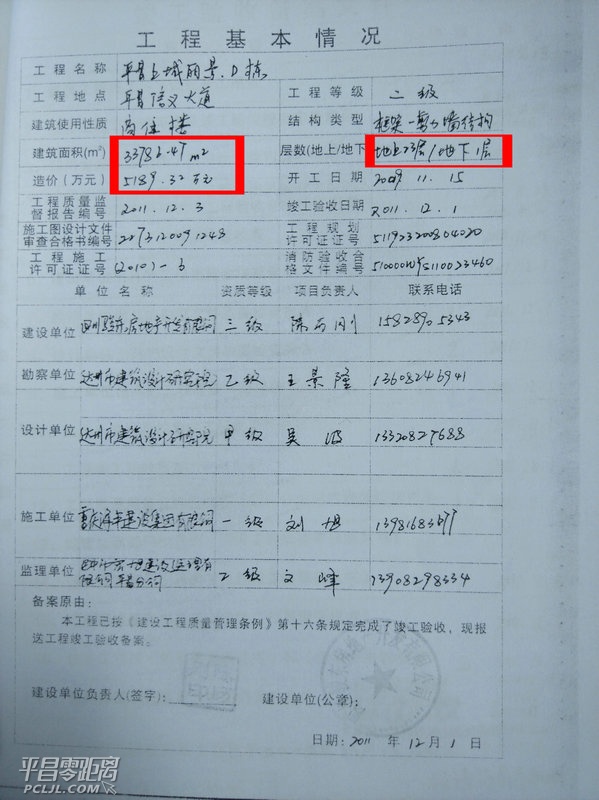 工程基本情况
工程名称 平昌上城丽景.D栋
工程地点 平昌信义大道 工程等级 二级
建筑使用性质 商住楼 结构类型 框架一剪力墙结构
建筑面积(m²) 33786.47m² 层数(地上/地下 地上23层/地下1层
造价(万元) 5189.32万元 开工日期 2009.11.15
工程质量监督报告编号 2011.12.3 竣工验收日期 2011.12.1
施工图设计文件审查合格书编号 2073120091243 工程规划许可证证号 511923200804020
工程施工许可证证号 (2010)-3 消防验收合格文件编号
单位名称 资质等级 项目负责人 联系电话
建设单位 三级 15828905343
勘察单位 达州市建筑设计研究院 乙级 王景隆 13608246941
设计单位 达州市建筑设计研究院 甲级 吴 13320827688
施工单位 一级 刘旭 13981683677
监理单位 乙级 文峰 13908298334
备案原由:
本工程已按《建设工程质量管理条例》第十六条规定完成了竣工验收，现报
送工程竣工验收备案。
建设单位负责人(签字): 建设单位(公章):
日期: 2011 年 12月 1日
平昌零距离
PCLJL.COM